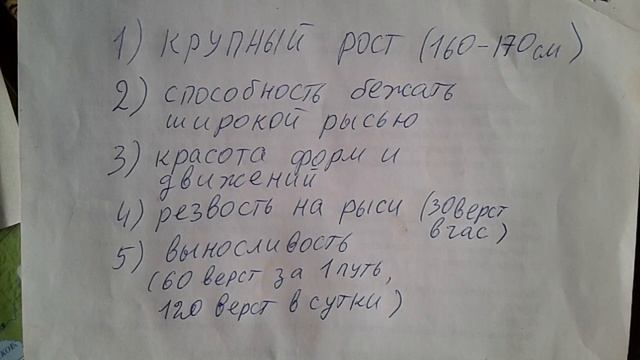 1) крупный рост (160-170см)
2) способность бежать
широкой рысью
3) красота форм и
движений
4) резвость на рыси (30верст
в час)
5) выносливость
(60 верст за 1 путь,
120 верст в сутки)